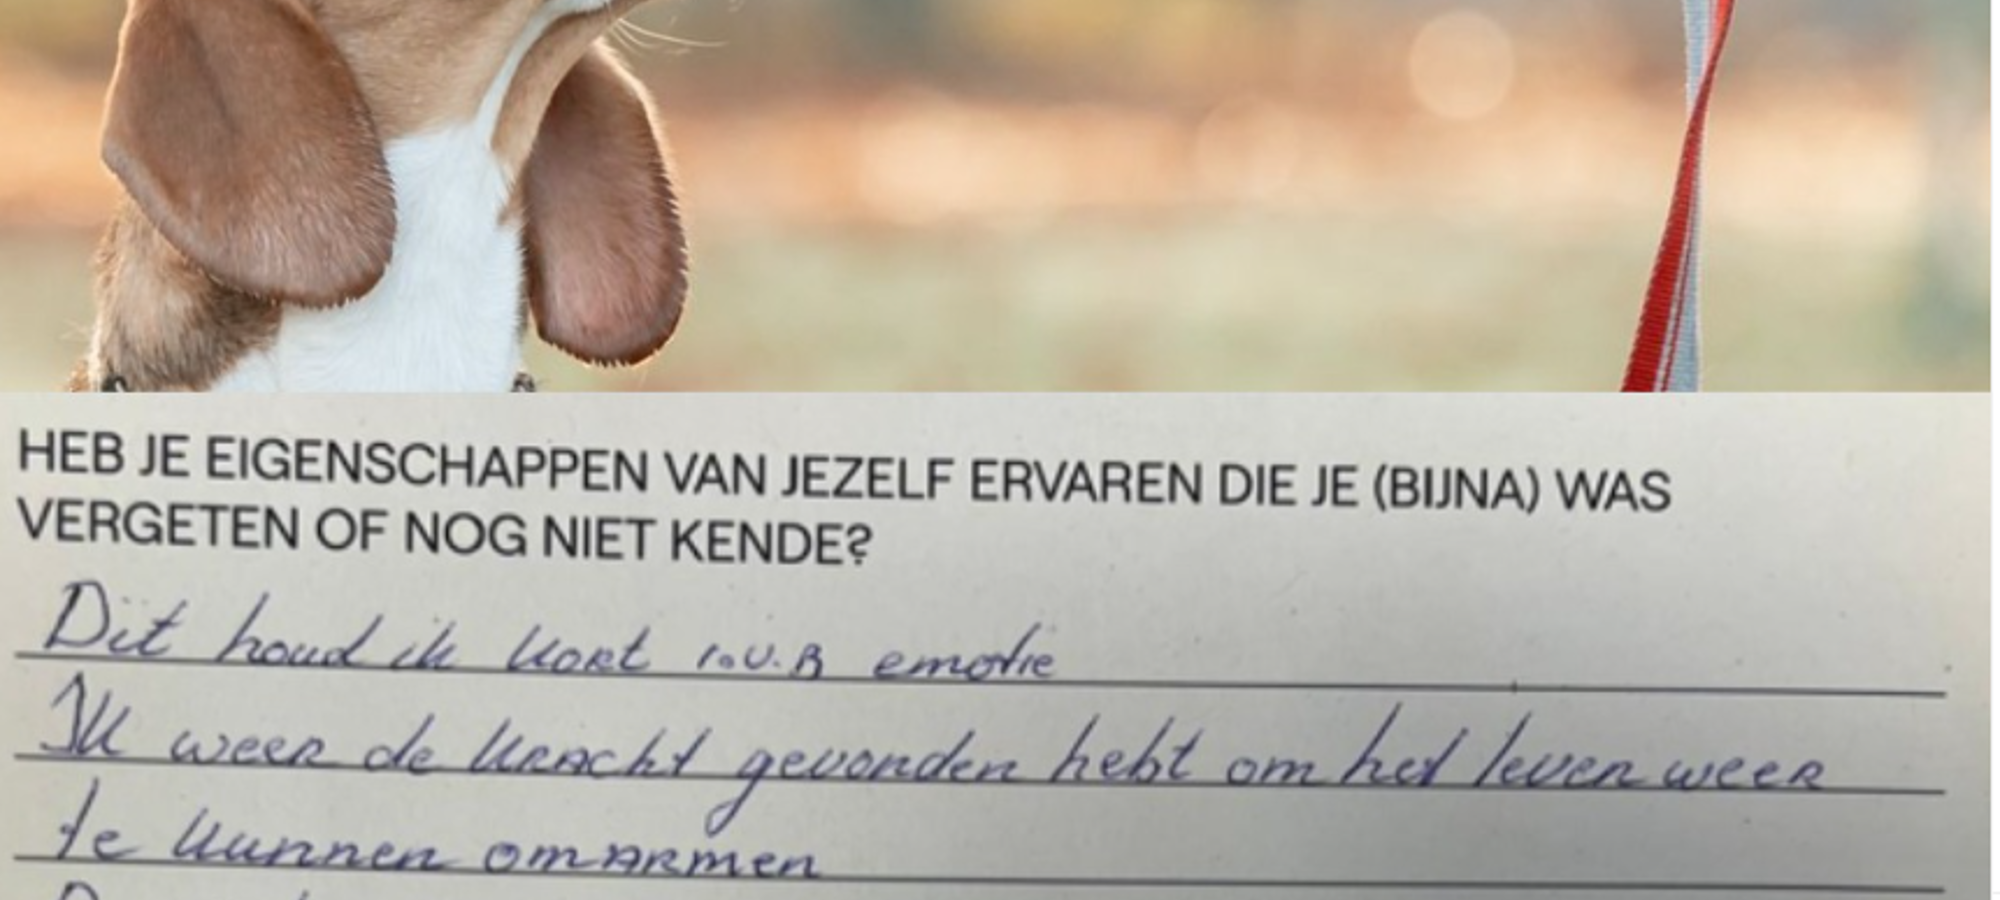 HEB JE EIGENSCHAPPEN VAN JEZELF ERVAREN DIE JE (BIJNA) WAS
VERGETEN OF NOG NIET KENDE?
Dit houd ik kort i.v.B emotie
Ik weer de kracht gevonden hebt om het leven weer
te kunnen omarmen